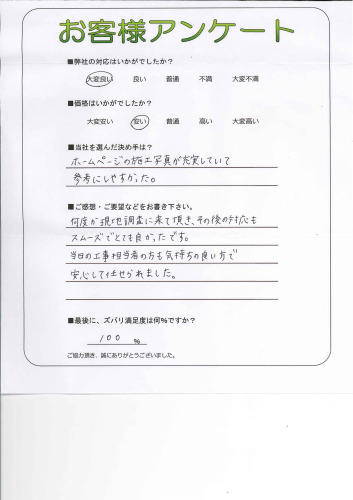 お客様アンケート
■弊社の対応はいかがでしたか？
大変良い 良い 普通 不満 大変不満
■価格はいかがでしたか？
大変安い 安い 普通 高い 大変高い
■当社を選んだ決め手は？
ホームページの施工写真が充実していて
参考にしやすかった。
■ご感想・ご要望などをお書き下さい。
何度か現地調査に来て頂き、その後の対応も
スムーズでとても良かったです。
当日の工事担当者の方も気持ちの良い方で
安心して任せられました。
■最後に、ズバリ満足度は何%ですか？
100 %
ご協力頂き、誠にありがとうございました。